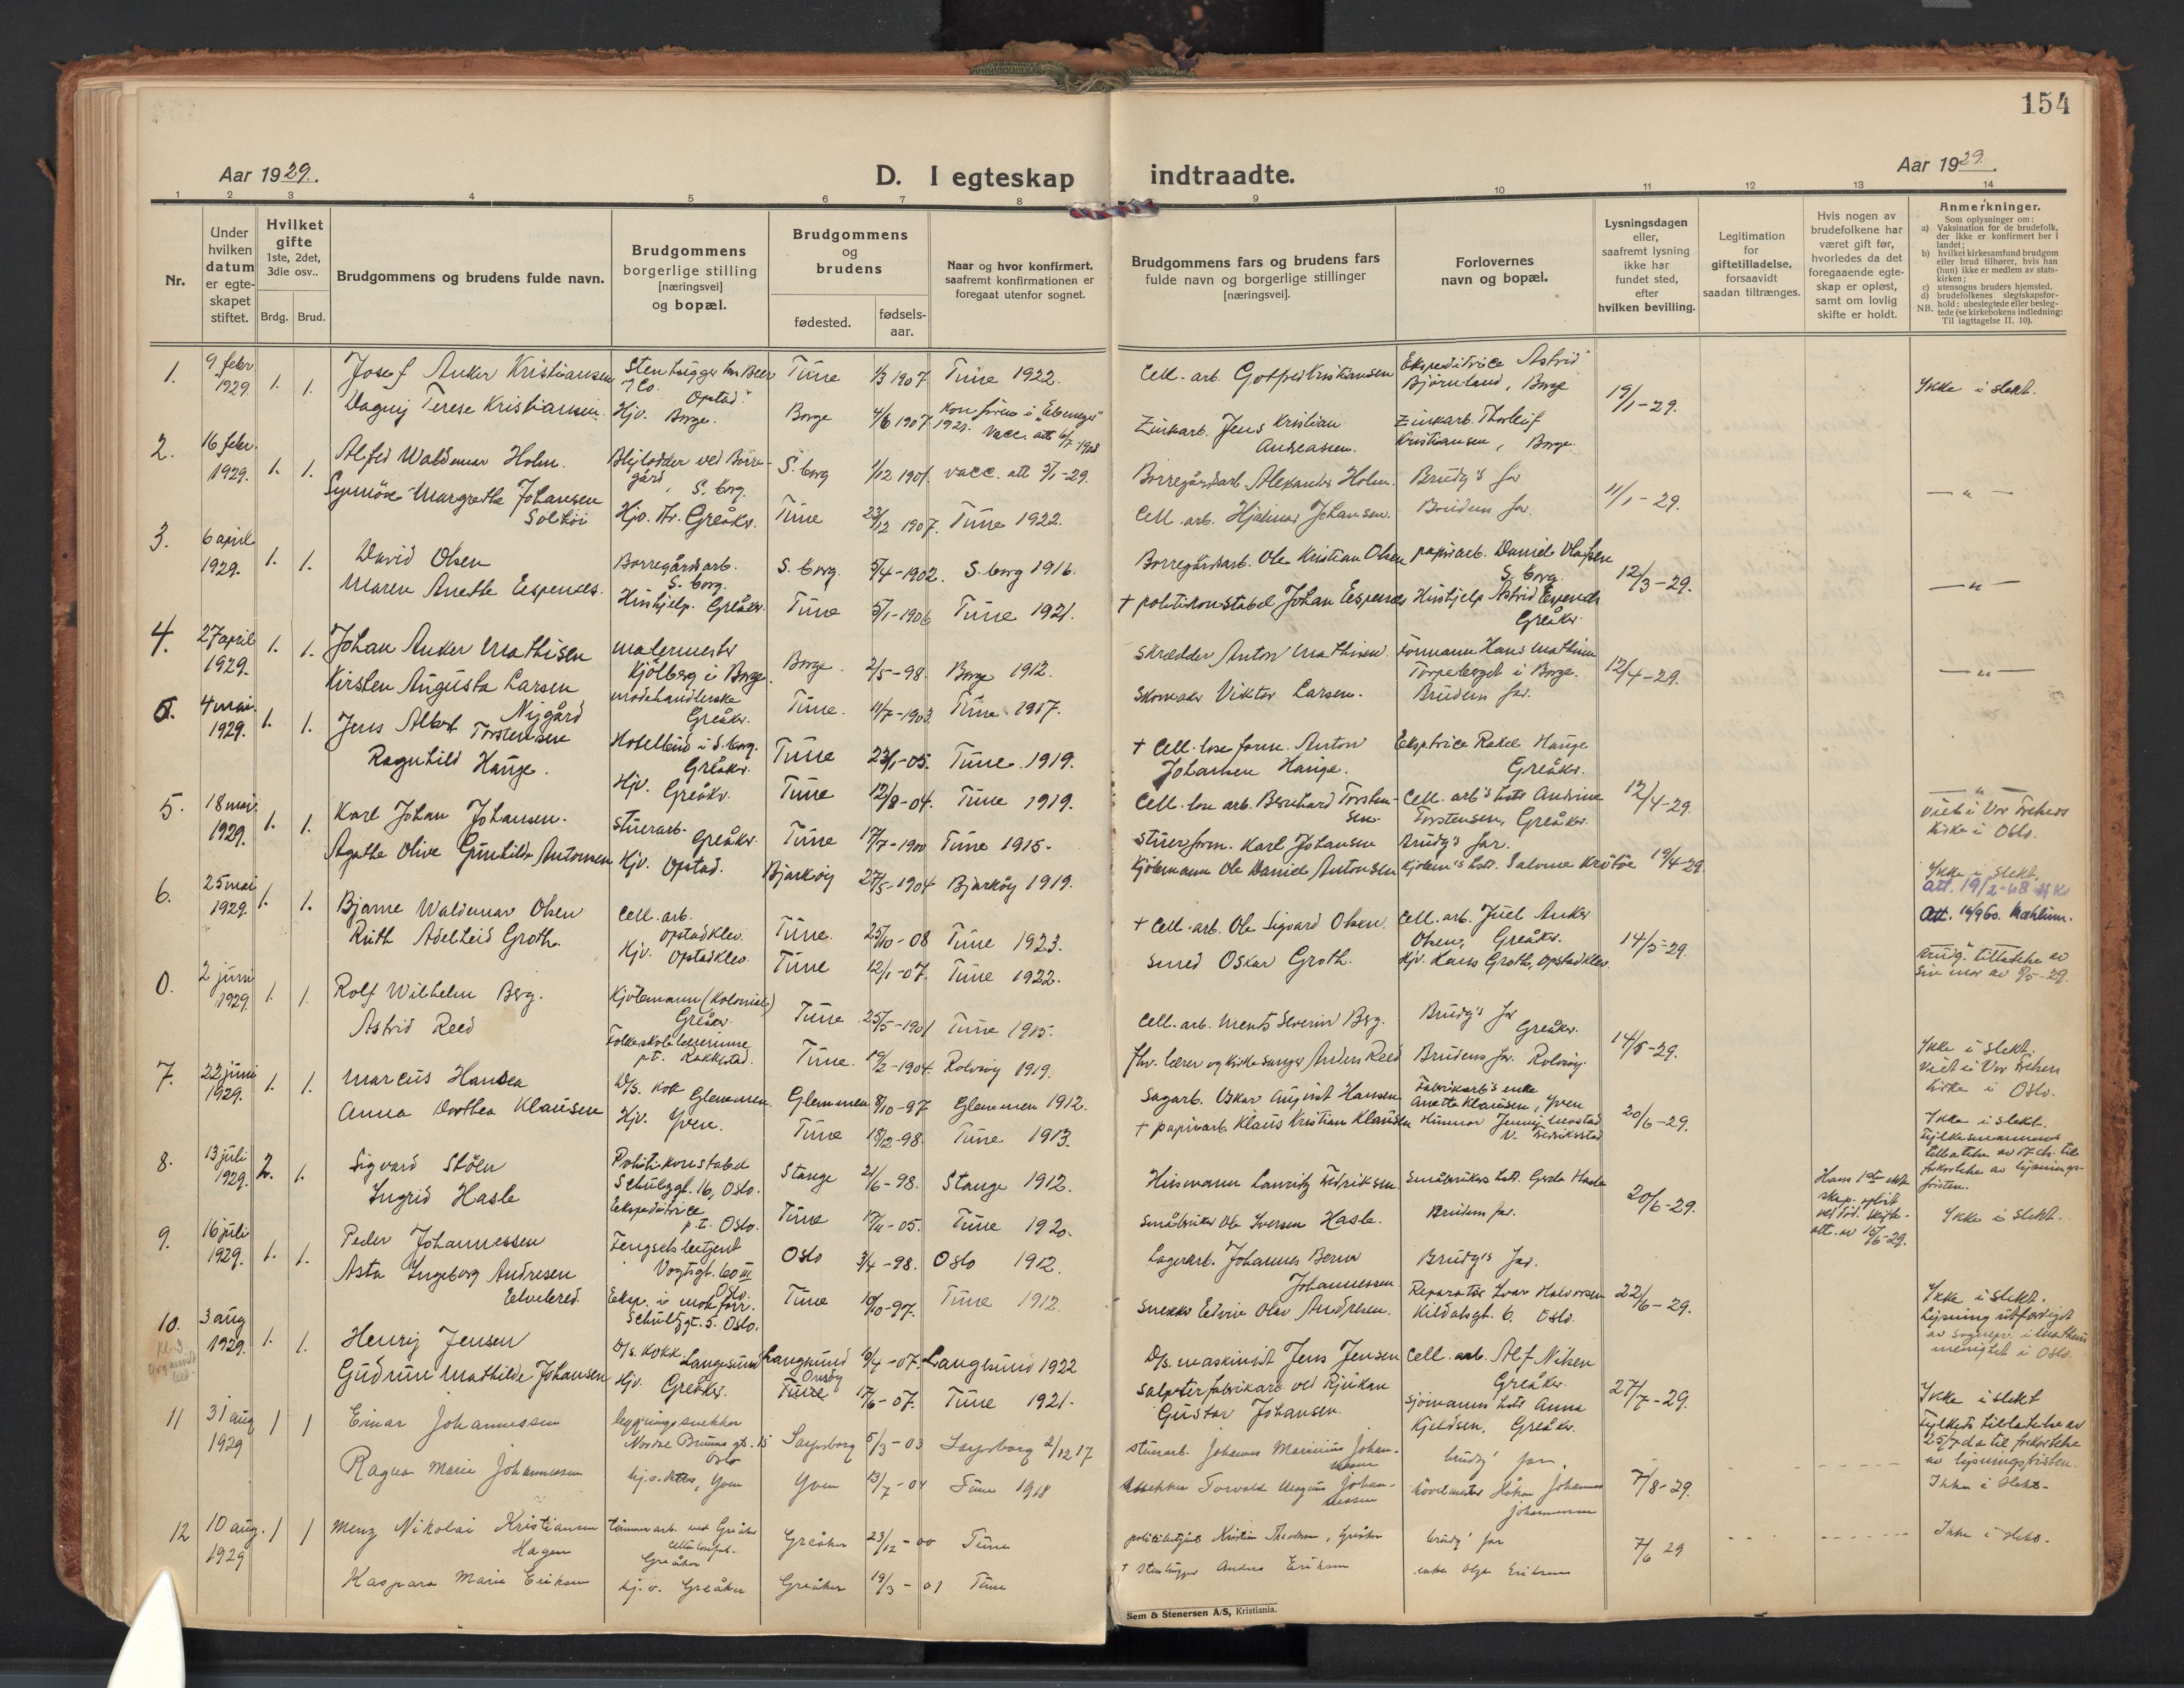 154
Aar 1929.
D. I egteskap indtraadte.
Aar 1929.
1 2 3 4 5 6 7 8 9 10 11 12 13 14
Nr.
Under hvilken datum er egteskapet stiftet.
Hvilket gifte 1ste, 2det, 3die osv..
Brdg. Brud.
Brudgommens og brudens fulde navn.
Brudgommens borgerlige stilling [næringsvei] og bopæl.
Brudgommens og brudens
fødested.
fødsels-aar.
Naar og hvor konfirmert, saafremt konfirmationen er foregaat utenfor sognet.
Brudgommens fars og brudens fars fulde navn og borgerlige stillinger [næringsvei].
Forlovernes navn og bopæl.
Lysningsdagen eller, saafremt lysning ikke har fundet sted, efter hvilken bevilling.
Legitimation for giftetilladelse, forsaavidt saadan tiltrænges.
Hvis nogen av brudefolkene har været gift før, hvorledes da det foregaaende egteskap er opløst, samt om lovlig skifte er holdt.
Anmerkninger.
Som oplysninger om:
a) Vaksination for de brudefolk, der ikke er konfirmert her i landet;
b) hvilket kirkesamfund brudgom eller brud tilhører, hvis han (hun) ikke er medlem av statskirken;
c) utensogns bruders hjemsted.
d) brudefolkenes slegtskapsforhold: ubeslegtede eller beslegtede (se kirkebokens indledning: Til iagttagelse II. 10).
NB.
1. 9 febr 1929. 1. 1. Josef Anker Kristiansen Tune 1/3 1907 Tune 1922. Cell-arb. Gotfred Kristiansen Ekspeditrice Astrid Bjørnland, Borge 19/1-29. Ykke i slekt.
Dagny Terese Kristiansen Hjv. Borge. Borge 4/6 1907. Zinkarb. Jens Kristian Andreassen. Zinkarb. Thorleif Kristiansen, Borge.
2. 16 febr. 1929. 1. 1. Alfred Waldemar Holm. S. borg 1/12 1901. vacc. att 5/1-29. Borregårdarb Alexander Holm. Brudg's far 11/1-29. — " —
Synnöve Margrethe Johansen Solhöi Hjv. Tune 23/12 1907. Tune 1922. Cell. arb. Hjalmar Johansen. Brudens far.
3. 6 april 1929. 1. 1. David Olsen Borregårdsarb. S. borg. S. borg. 5/4-1902. S. borg 1916. Borregårdsarb. Ole Kristian Olsen papirarb. Daniel Olafsen S. borg 12/3-29. — " —
Maren Anette Espenes. Hushjelp. Greåkr. Tune 5/1-1906 Tune 1921. + politikonstabel Johan Espenes Hushjelp Astrid Espenes Greåkr.
4. 27 april 1929. 1. 1. Johan Anker Mathisen malermester Kjölberg i Borge. Borge. 2/5-98. Borge 1912. Skrædder Anton Mathisen. Formann Hans Mathisen Torpeberget i Borge. 12/4-29. — " —
Kirsten Augusta Larsen modehandlerske Greåkr. Tune. 11/7-1903. Tune 1917. Skomaker Viktor Larsen. Brudens far.
5. 4 mai. 1929. 1. 1. Jens Albert Nygård Torstensen Greåkr. Tune 23/1-05. Tune 1919. + Cell. lose form. Anton Johansen Hauge. Eksptrice Rakel Hauge Greåkr.
Ragnhild Hauge. Hjv. Greåkr. Tune 12/8-04. Tune 1919. Cell. lose arb. Bernhard Torstensen. Cell. arb's hstr Andrine Torstensen, Greåkr. 12/4-29. — " — Viet i Vor Frelsers Kirke i Oslo.
5. 18 mai. 1929. 1. 1. Karl Johan Johansen. Stuerarb. Greåkr. Tune 17/7-1900 Tune 1915. Stuerform. Karl Johansen Brudg's far. 19/4-29.
Agathe Olive Gunhilde Antonsen Hjv. Opstad. Bjarköy 27/5-1904 Bjarköy 1919. Kjölemann Ole Daniel Antonsen Ykke i slekt. Att. 19/2-68
Att. 16/960. Mæhlum.
6. 25 mai 1929. 1. 1. Bjarne Waldemar Olsen Cell. arb. Opstadklev. Tune. 25/10-08 Tune 1923. + Cell. arb. Ole Sigvard Olsen. Cell. arb. Juel Anker Olsen, Greåkr. 14/5-29. Brudg. tilladelse av sin mor av 8/5-29.
Ruth Adelheid Groth. Hjv. Opstadklev. Tune 12/1-07. Tune 1922. Smed Oskar Groth. Hjv. Hans Groth, Opstadklev.
0. 2 juni 1929. 1. 1. Rolf Wilhelm Berg. Kjöbmann (kolonial) Greåkr. Tune 25/5-1901 Tune 1915. Cell. arb. Ments Severin Berg. Brudg's far Greåkr. 14/5-29. Ykke i slekt. Viet i Vor Frelsers kirke i Oslo.
Astrid Reed Folkeskolelærerinne p.t. Rakkestad. Tune. 19/2-1904. Rolvsöy 1919. fhv. lærer og kirkesanger Anders Reed Brudens far. Rolvsöy.
7. 22 juni 1929. 1. 1. Marcus Hansen D/S. kokk Glemmen. Glemmen 8/10-97 Glemmen 1912. Sagarb. Oskar August Hansen Fabrikarb's enke Anette Klausen, Yven 20/6-29. Ykke i slekt.
Anna Dorthea Klausen Hjv. Yven. Tune 18/2-98. Tune 1913. + papirarb. Klaus Kristian Klausen Husmor Jenny V. Fredriksstad
8. 13 juli 1929. 2. 1. Sigvard Stöen Politikonstabel Schultzgt. 16, Oslo. Stange 21/6-98. Stange 1912. Husmann Lauritz Fredriksen Småbrukers hstr. Gerda Hasle 20/6-29. Ykke i slekt.
Ingrid Hasle Ekspeditrice p.t. Oslo. Tune 17/11-05. Tune 1920. Småbruker Ole Iversen Hasle. Brudens far.
9. 16 juli 1929. 1. 1. Peder Johannessen Fengselsbetjent Vogtsgt. 60 III Oslo. Oslo 3/4-98. Oslo 1912. Lagerarb. Johannes Berner Johannessen Brudg's far. 22/6-29. Ykke i slekt. Lysning utferdiget av sognepr. i menighet i Oslo.
Asta Ingeborg Andresen Elvebred. Eksp. i Schultzgt. 5. Oslo. Tune 10/10-97. Tune 1912. Snekker Edvin Olav Andresen. Reparatör Ivar Halvorsen Kildalsgt. 6. Oslo.
10. 3 aug 1929. 1. 1. Henry Jensen D/s. kokk Langesund Langesund 9/4-07. Langesund 1922 D/s. maskinist Jens Jensen Cell. arb. Alf Nilsen Greåker. 27/7-29. Ykke i slekt Fylkets tilladelse av 25/7 d.a til forkortelse av lysningsfristen.
Gudrun Mathilde Johansen Hjv. Greåkr. Onsöy Tune 17/6-07. Tune 1921. Salpeterfabrikarb ved Rjukan Gustav Johansen. Sjömanns hstr Anna Kjeldsen, Greåkr.
11 31 aug 1929 1 1 Einar Johannessen bygningssnekker Nordre Brunns gt. 15 Oslo Sarpsborg 5/3-03 Sarpsborg 2/12 17 Stuerarb. Johannes Marinius Johannessen brudg' far. 7/8-29. Ikke i slekt.
Ragna Marie Johannessen hj. v. datter, Yven Yven 13/7-04 Tune 1918 snekker Torvald Magnus Johannessen Håkon Johannes Johannessen
12 10 aug. 1929 1 1 Menz Nikolai Kristiansen Hagen tömmerarb. ved Greåker Greåker Greåker 23/12-00 Tune politibetjent Kristian Greåker brudg' far 7/6 29 Ikke i slekt.
Kaspara Marie Eriksen hj. v. Greåker Greåker 19/3-01 Tune + Stenhugger Anders Eriksen enke Olga Eriksen
Sem & Stenersen A/S, Kristiania.